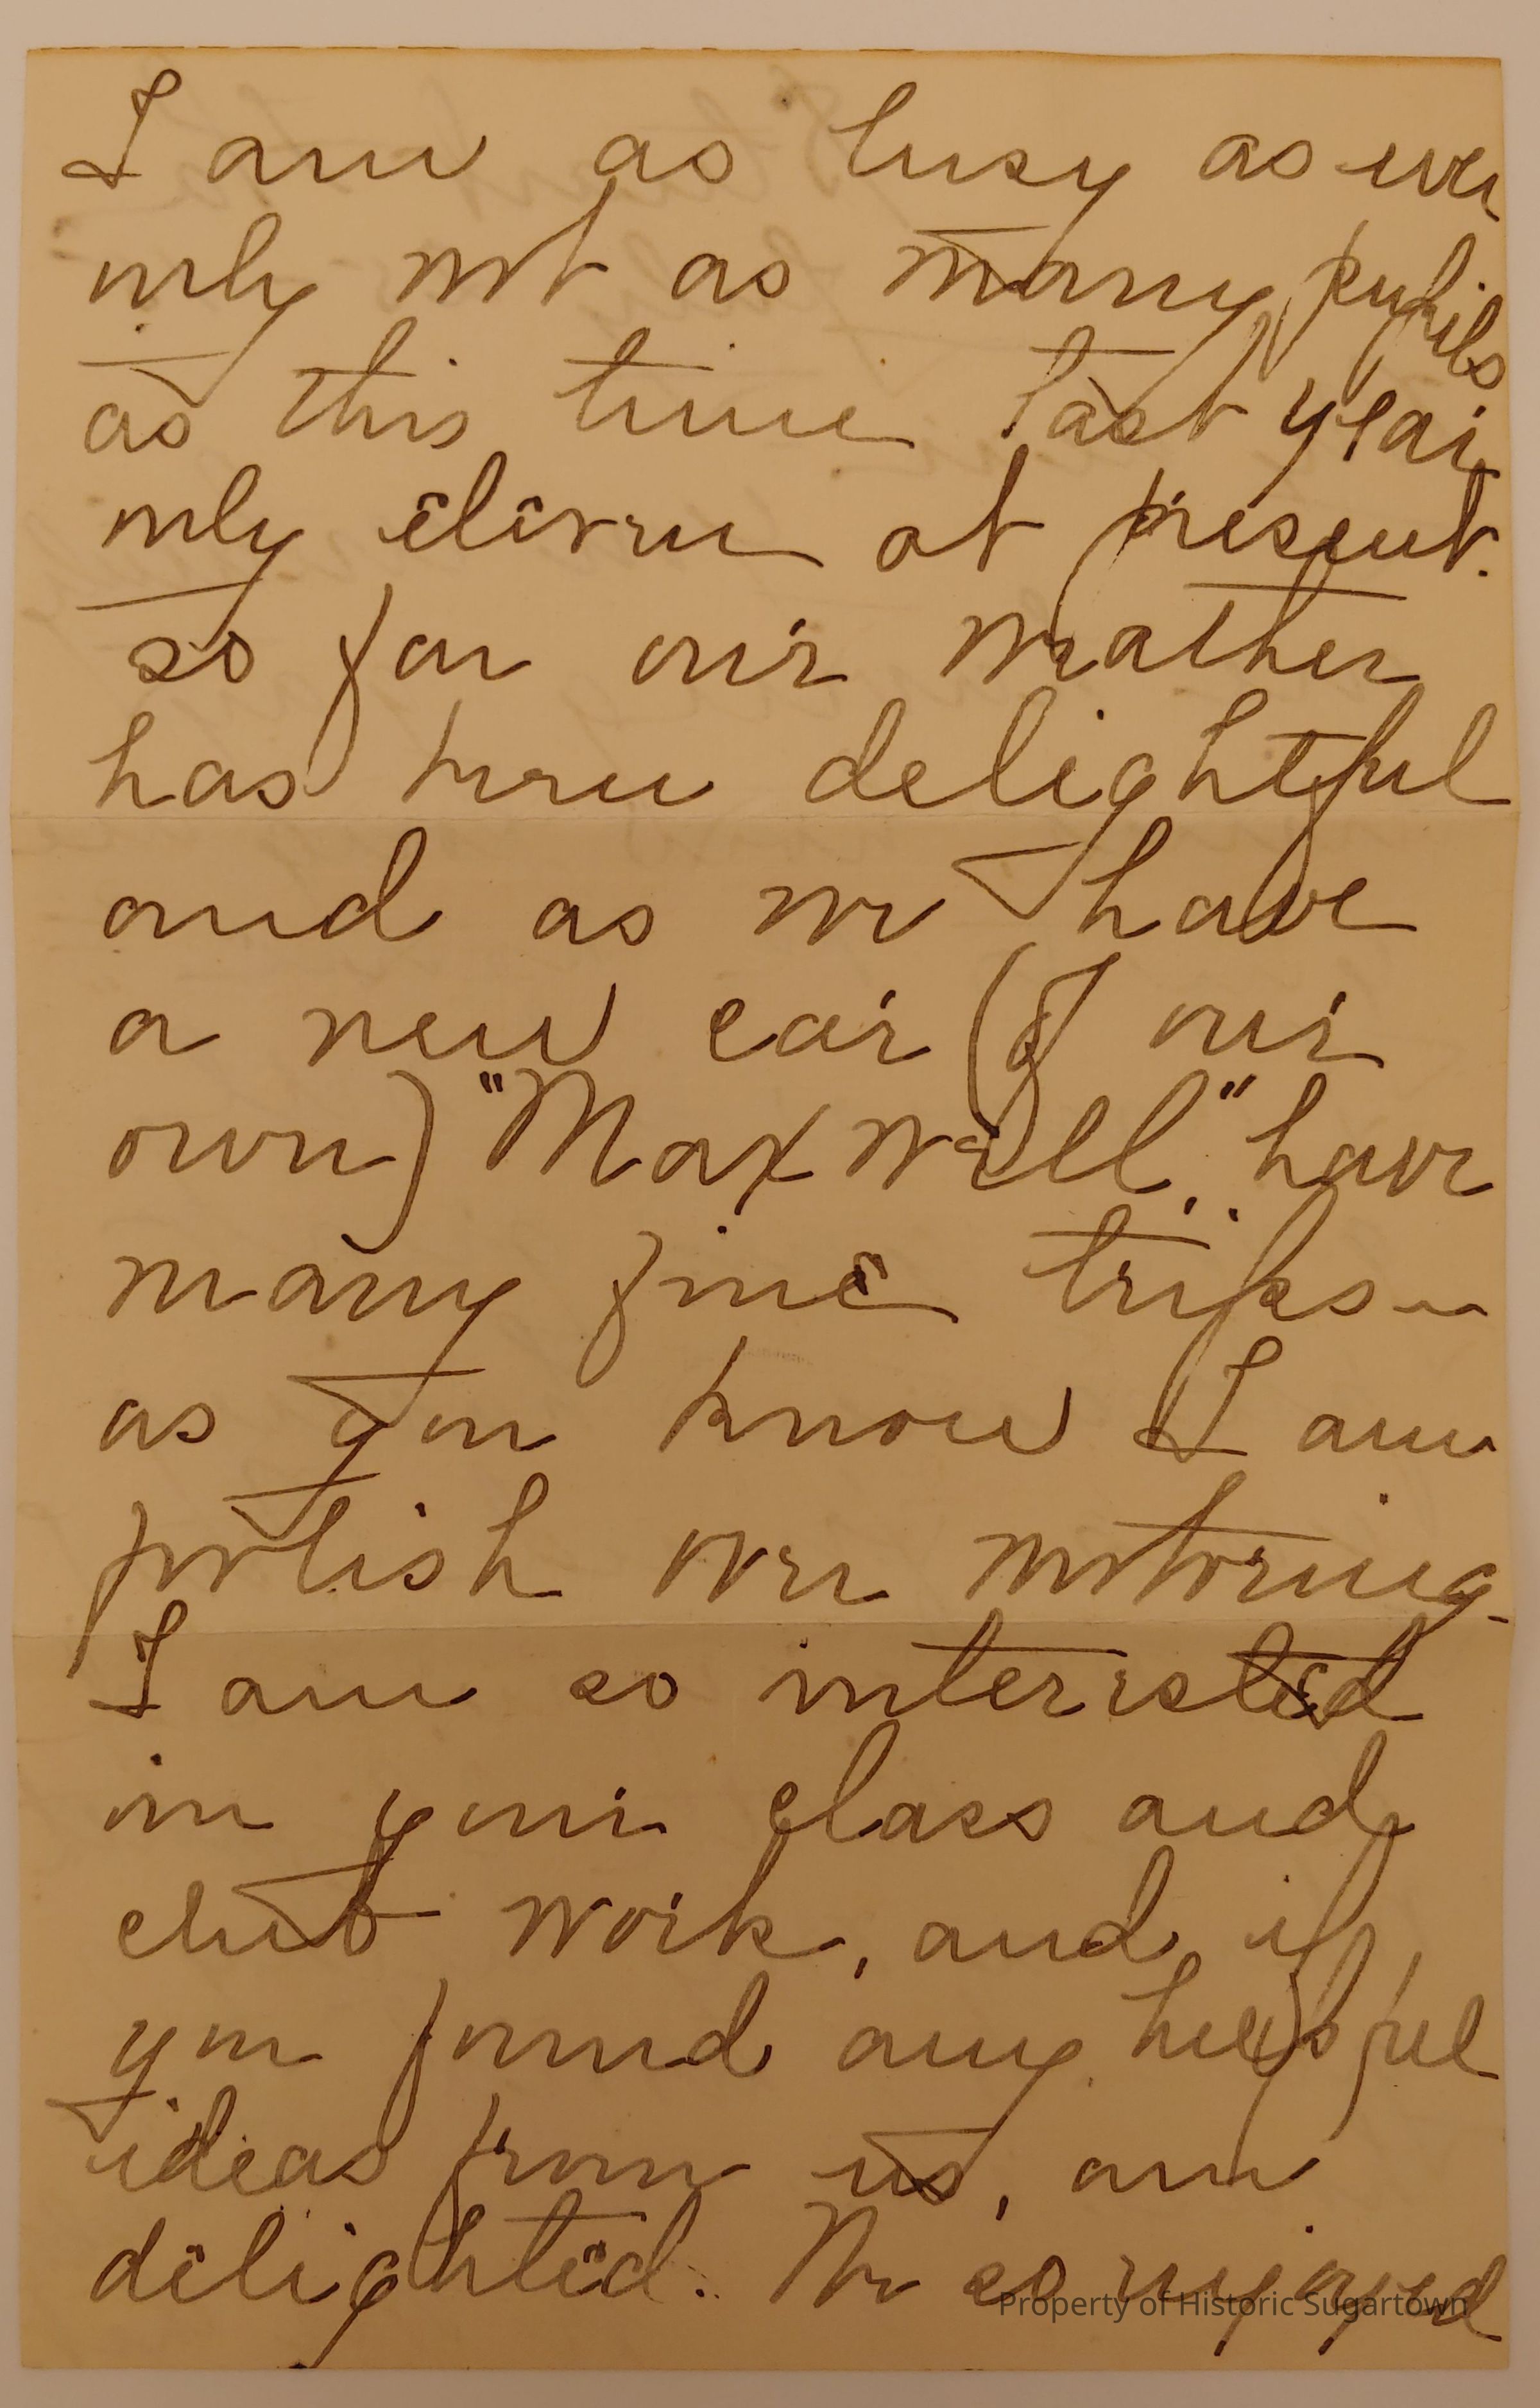 I am as busy as ever
only not as many pupils
as this time last year
only eleven at present.
so far our weather
has been delightful
and as we have
a new car (of our
own) "Maxwell," have
many fine trips -
as you know I am
foolish over motoring.
I am so interested
in your class and
club work, and if
you found any helpful
ideas from us, am
delighted. We so enjoyed
Property of Historic Sugartown